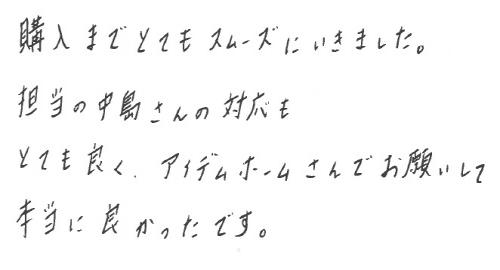 購入までとてもスムーズにいきました。
担当の中島さんの対応も
とても良く、アイデムホームさんでお願いして
本当に良かったです。